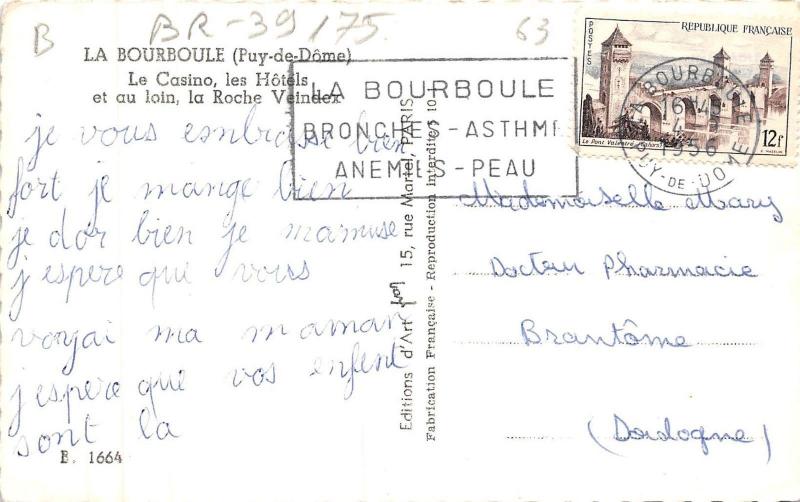 B
BR-39/75
63
LA BOURBOULE (Puy-de-Dôme)
Le Casino, les Hôtels
et au loin, la Roche Vendeix
LA BOURBOULE
BRONCHES - ASTHME
ANEMIES - PEAU
POSTES
REPUBLIQUE FRANÇAISE
Le Pont Valentré Cahors
12f
LA BOURBOULE
16
1956
PUY-DE-DOME
je vous embrasse bien
fort je mange bien
je dor bien je mamuse
j espere que vous
voyai ma maman
j espere que vos enfent
sont la
E. 1664
Editions d'Art Yvon 15, rue Martel, PARIS
Fabrication Française - Reproduction interdite
Mademoiselle Mary
Docteur Pharmacie
Brantôme
(Dordogne)